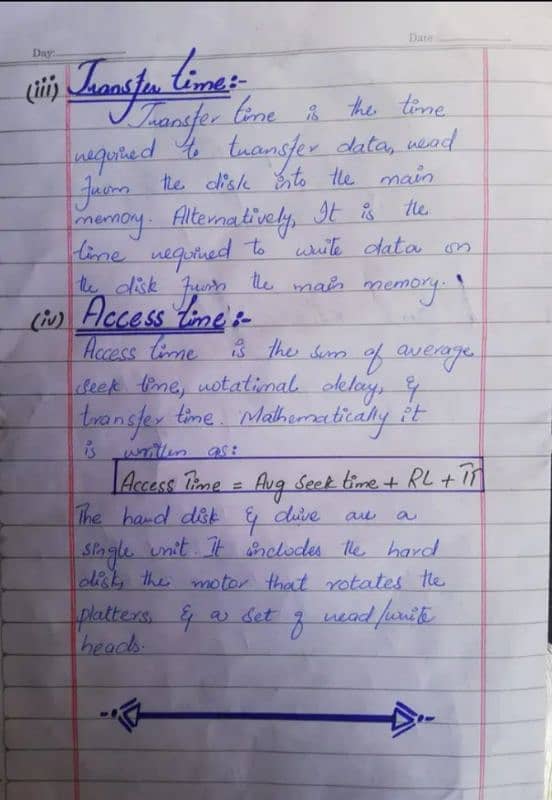 Day:
Date
(iii) Transfer time:-
Transfer time is the time
required to transfer data, read
from the disk into the main
memory. Alternatively, It is the
time required to write data on
the disk from the main memory.
(iv) Access time:-
Access time is the sum of average
seek time, rotational delay, &
transfer time. Mathematically it
is written as:
Access Time = Avg Seek time + RL + TT
The hard disk & drive are a
single unit. It includes the hard
disk, the motor that rotates the
platters, & a set of read/write
heads.